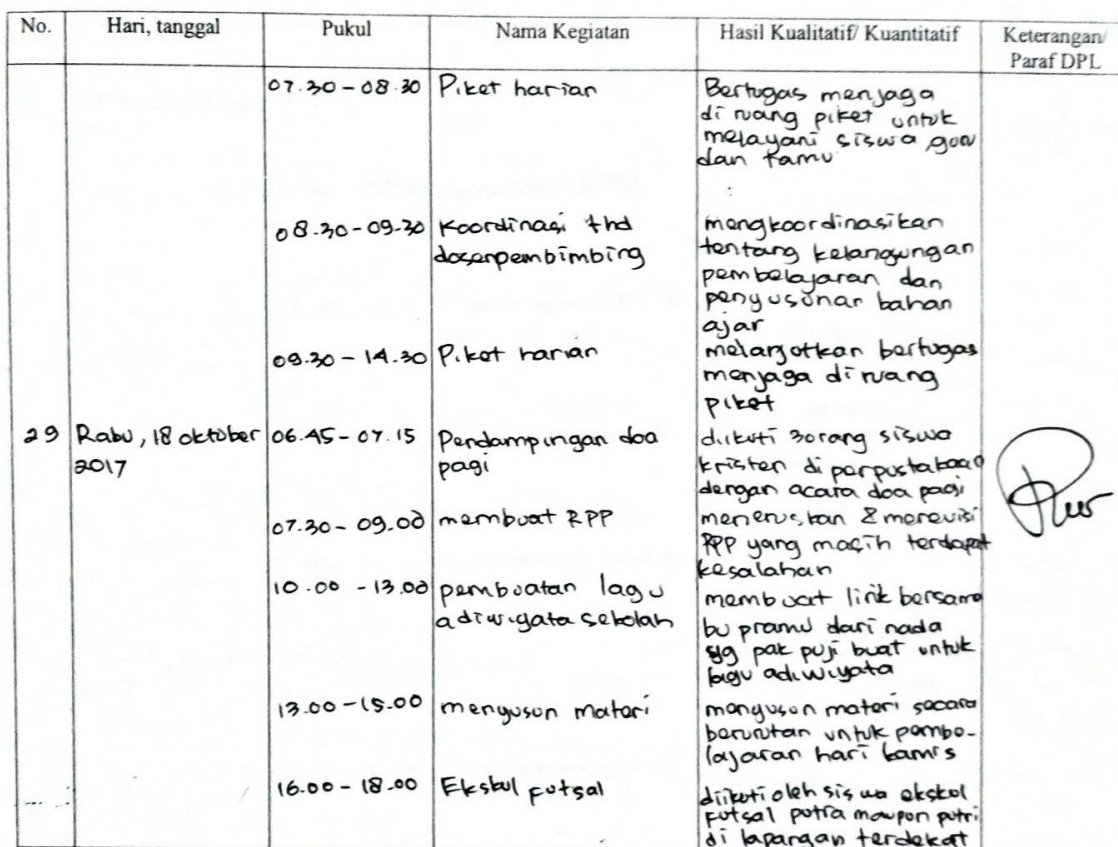 No. Hari, tanggal Pukul Nama Kegiatan Hasil Kualitatif/ Kuantitatif Keterangan/
Paraf DPL
07.30 - 08.30 Piket harian Bertugas menjaga
di ruang piket untuk
melayani siswa, guru
dan tamu
08.30 - 09.30 Koordinasi thd mengkoordinasikan
dosenpembimbing tentang kelangsungan
pembelajaran dan
penyusunan bahan
ajar
09.30 - 14.30 Piket harian melanjutkan bertugas
menjaga di ruang
piket
29 Rabu, 18 oktober 06.45 - 07.15 Pendampingan doa diikuti 3orang siswa
2017 pagi kristen di perpustakaan
dengan acara doa pagi
07.30 - 09.00 membuat RPP meneruskan & merevisi
RPP yang masih terdapat
kesalahan
10.00 - 13.00 pembuatan lagu membuat lirik bersama
adiwiyata sekolah bu pramu dari nada
yg pak puji buat untuk
lagu adiwiyata
13.00 - 15.00 menyusun materi menyusun materi secara
berurutan untuk pembe-
lajaran hari kamis
16.00 - 18.00 Ekskul futsal diikuti oleh siswa ekskul
futsal putra maupun putri
di lapangan terdekat